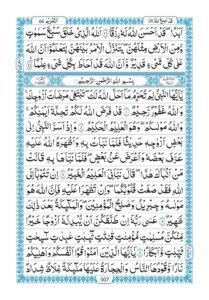 قَدْ سَمِعَ اللّٰهُ ٢٨ اَلتَّحْرِيْم ٦٦
اَبَدًا ؕ قَدْ اَحْسَنَ اللّٰهُ لَهٗ رِزْقًا اَللّٰهُ الَّذِيْ خَلَقَ سَبْعَ سَمٰوٰتٍ
وَّمِنَ الْاَرْضِ مِثْلَهُنَّ ؕ يَتَنَزَّلُ الْاَمْرُ بَيْنَهُنَّ لِتَعْلَمُوْۤا اَنَّ اللّٰهَ
عَلٰى كُلِّ شَيْءٍ قَدِيْرٌ وَّاَنَّ اللّٰهَ قَدْ اَحَاطَ بِكُلِّ شَيْءٍ عِلْمًا
بِسْمِ اللّٰهِ الرَّحْمٰنِ الرَّحِيْمِ
يٰۤاَيُّهَا النَّبِيُّ لِمَ تُحَرِّمُ مَاۤ اَحَلَّ اللّٰهُ لَكَ ۚ تَبْتَغِيْ مَرْضَاتَ اَزْوَاجِكَ ؕ
وَاللّٰهُ غَفُوْرٌ رَّحِيْمٌ قَدْ فَرَضَ اللّٰهُ لَكُمْ تَحِلَّةَ اَيْمَانِكُمْ ۚ
وَاللّٰهُ مَوْلٰىكُمْ ۚ وَهُوَ الْعَلِيْمُ الْحَكِيْمُ وَاِذْ اَسَرَّ النَّبِيُّ اِلٰى
بَعْضِ اَزْوَاجِهٖ حَدِيْثًا ۚ فَلَمَّا نَبَّاَتْ بِهٖ وَاَظْهَرَهُ اللّٰهُ عَلَيْهِ
عَرَّفَ بَعْضَهٗ وَاَعْرَضَ عَنْۢ بَعْضٍ ۚ فَلَمَّا نَبَّاَهَا بِهٖ قَالَتْ
مَنْ اَنْۢبَاَكَ هٰذَا ؕ قَالَ نَبَّاَنِيَ الْعَلِيْمُ الْخَبِيْرُ اِنْ تَتُوْبَاۤ اِلَى
اللّٰهِ فَقَدْ صَغَتْ قُلُوْبُكُمَا ۚ وَاِنْ تَظٰهَرَا عَلَيْهِ فَاِنَّ اللّٰهَ هُوَ
مَوْلٰىهُ وَجِبْرِيْلُ وَصَالِحُ الْمُؤْمِنِيْنَ ۚ وَالْمَلٰٓئِكَةُ بَعْدَ ذٰلِكَ
ظَهِيْرٌ عَسٰى رَبُّهٗۤ اِنْ طَلَّقَكُنَّ اَنْ يُّبْدِلَهٗۤ اَزْوَاجًا خَيْرًا
مِّنْكُنَّ مُسْلِمٰتٍ مُّؤْمِنٰتٍ قٰنِتٰتٍ تٰٓئِبٰتٍ عٰبِدٰتٍ سٰٓئِحٰتٍ
ثَيِّبٰتٍ وَّاَبْكَارًا يٰۤاَيُّهَا الَّذِيْنَ اٰمَنُوْا قُوْۤا اَنْفُسَكُمْ وَاَهْلِيْكُمْ
نَارًا وَّقُوْدُهَا النَّاسُ وَالْحِجَارَةُ عَلَيْهَا مَلٰٓئِكَةٌ غِلَاظٌ شِدَادٌ
507